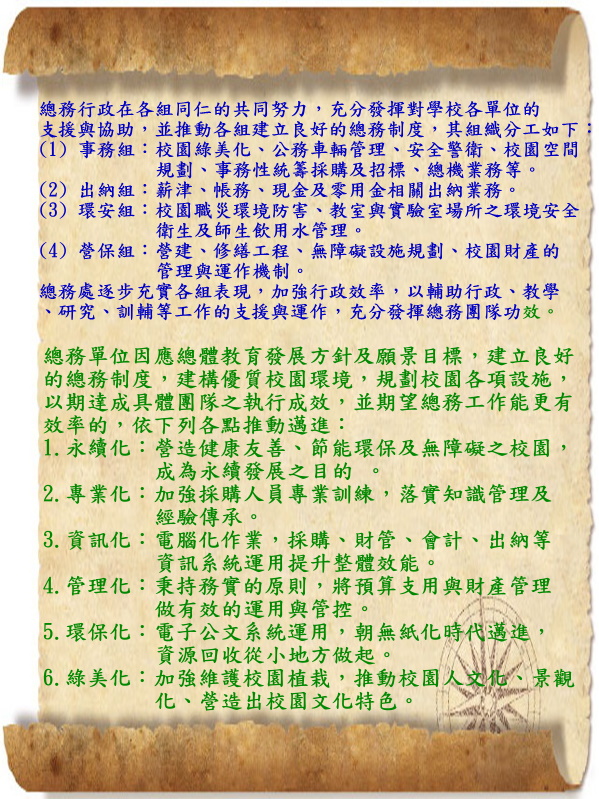 總務行政在各組同仁的共同努力，充分發揮對學校各單位的
支援與協助，並推動各組建立良好的總務制度，其組織分工如下：
(1) 事務組：校園綠美化、公務車輛管理、安全警衛、校園空間
規劃、事務性統籌採購及招標、總機業務等。
(2) 出納組：薪津、帳務、現金及零用金相關出納業務。
(3) 環安組：校園職災環境防害、教室與實驗室場所之環境安全
衛生及師生飲用水管理。
(4) 營保組：營建、修繕工程、無障礙設施規劃、校園財產的
管理與運作機制。
總務處逐步充實各組表現，加強行政效率，以輔助行政、教學
、研究、訓輔等工作的支援與運作，充分發揮總務團隊功效。
總務單位因應總體教育發展方針及願景目標，建立良好
的總務制度，建構優質校園環境，規劃校園各項設施，
以期達成具體團隊之執行成效，並期望總務工作能更有
效率的，依下列各點推動邁進：
1.永續化：營造健康友善、節能環保及無障礙之校園，
成為永續發展之目的 。
2.專業化：加強採購人員專業訓練，落實知識管理及
經驗傳承。
3.資訊化：電腦化作業，採購、財管、會計、出納等
資訊系統運用提升整體效能。
4.管理化：秉持務實的原則，將預算支用與財產管理
做有效的運用與管控。
5.環保化：電子公文系統運用，朝無紙化時代邁進，
資源回收從小地方做起。
6.綠美化：加強維護校園植栽，推動校園人文化、景觀
化、營造出校園文化特色。